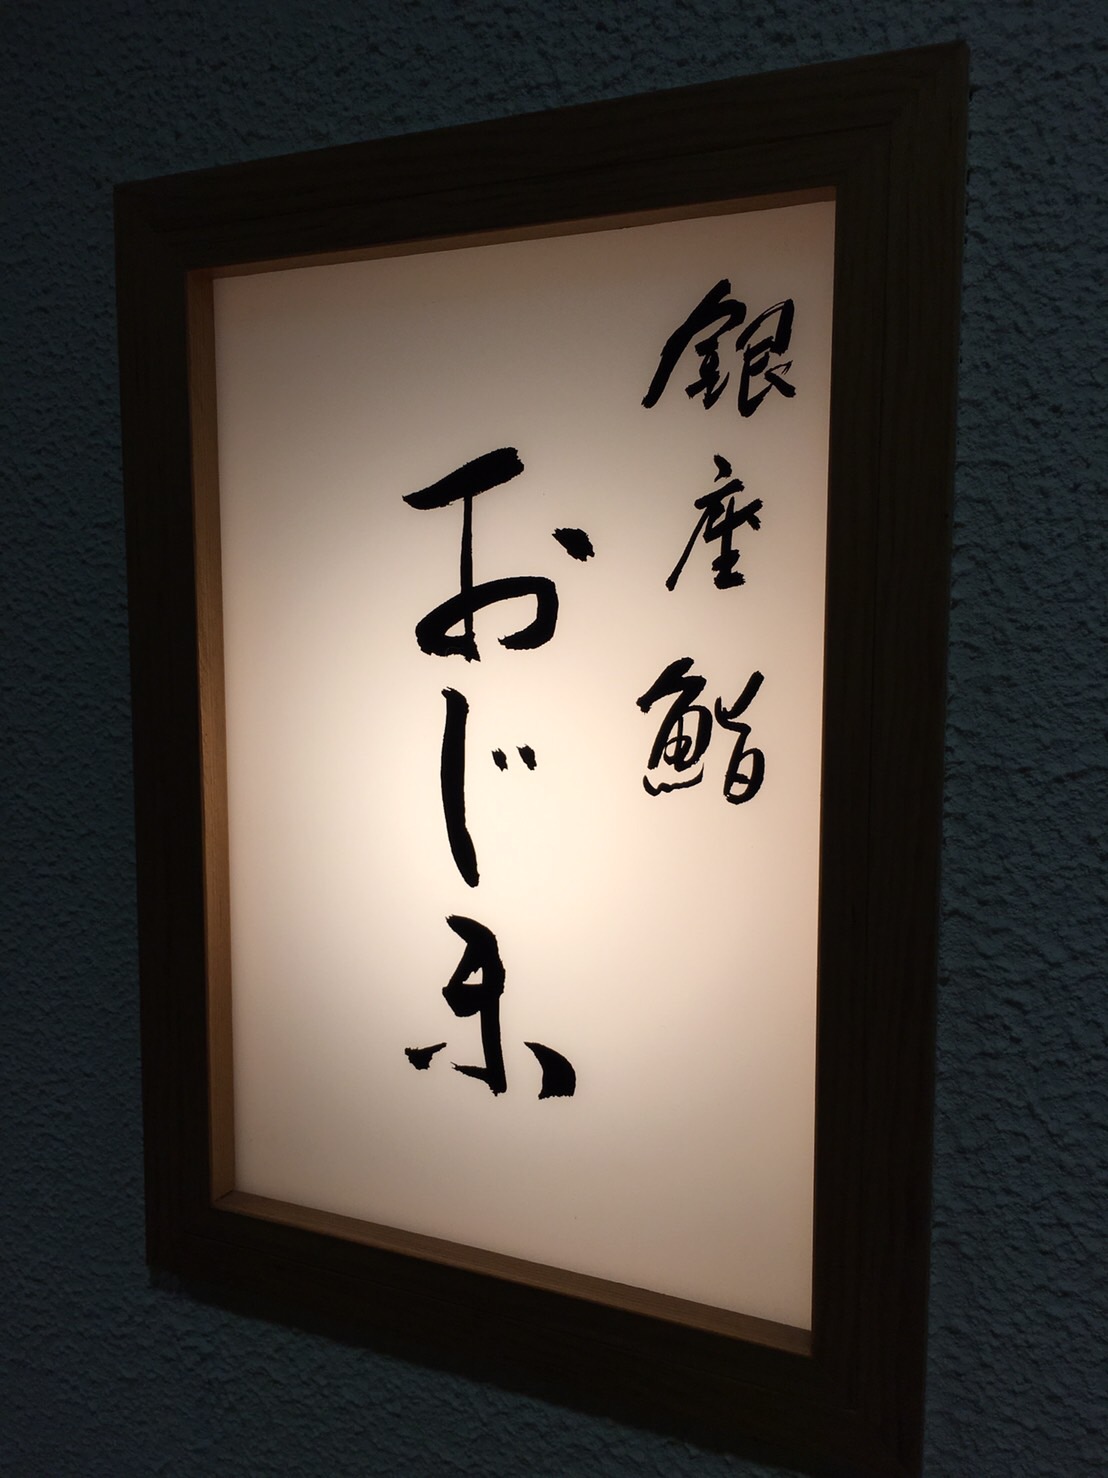 銀座鮨
おじ乐